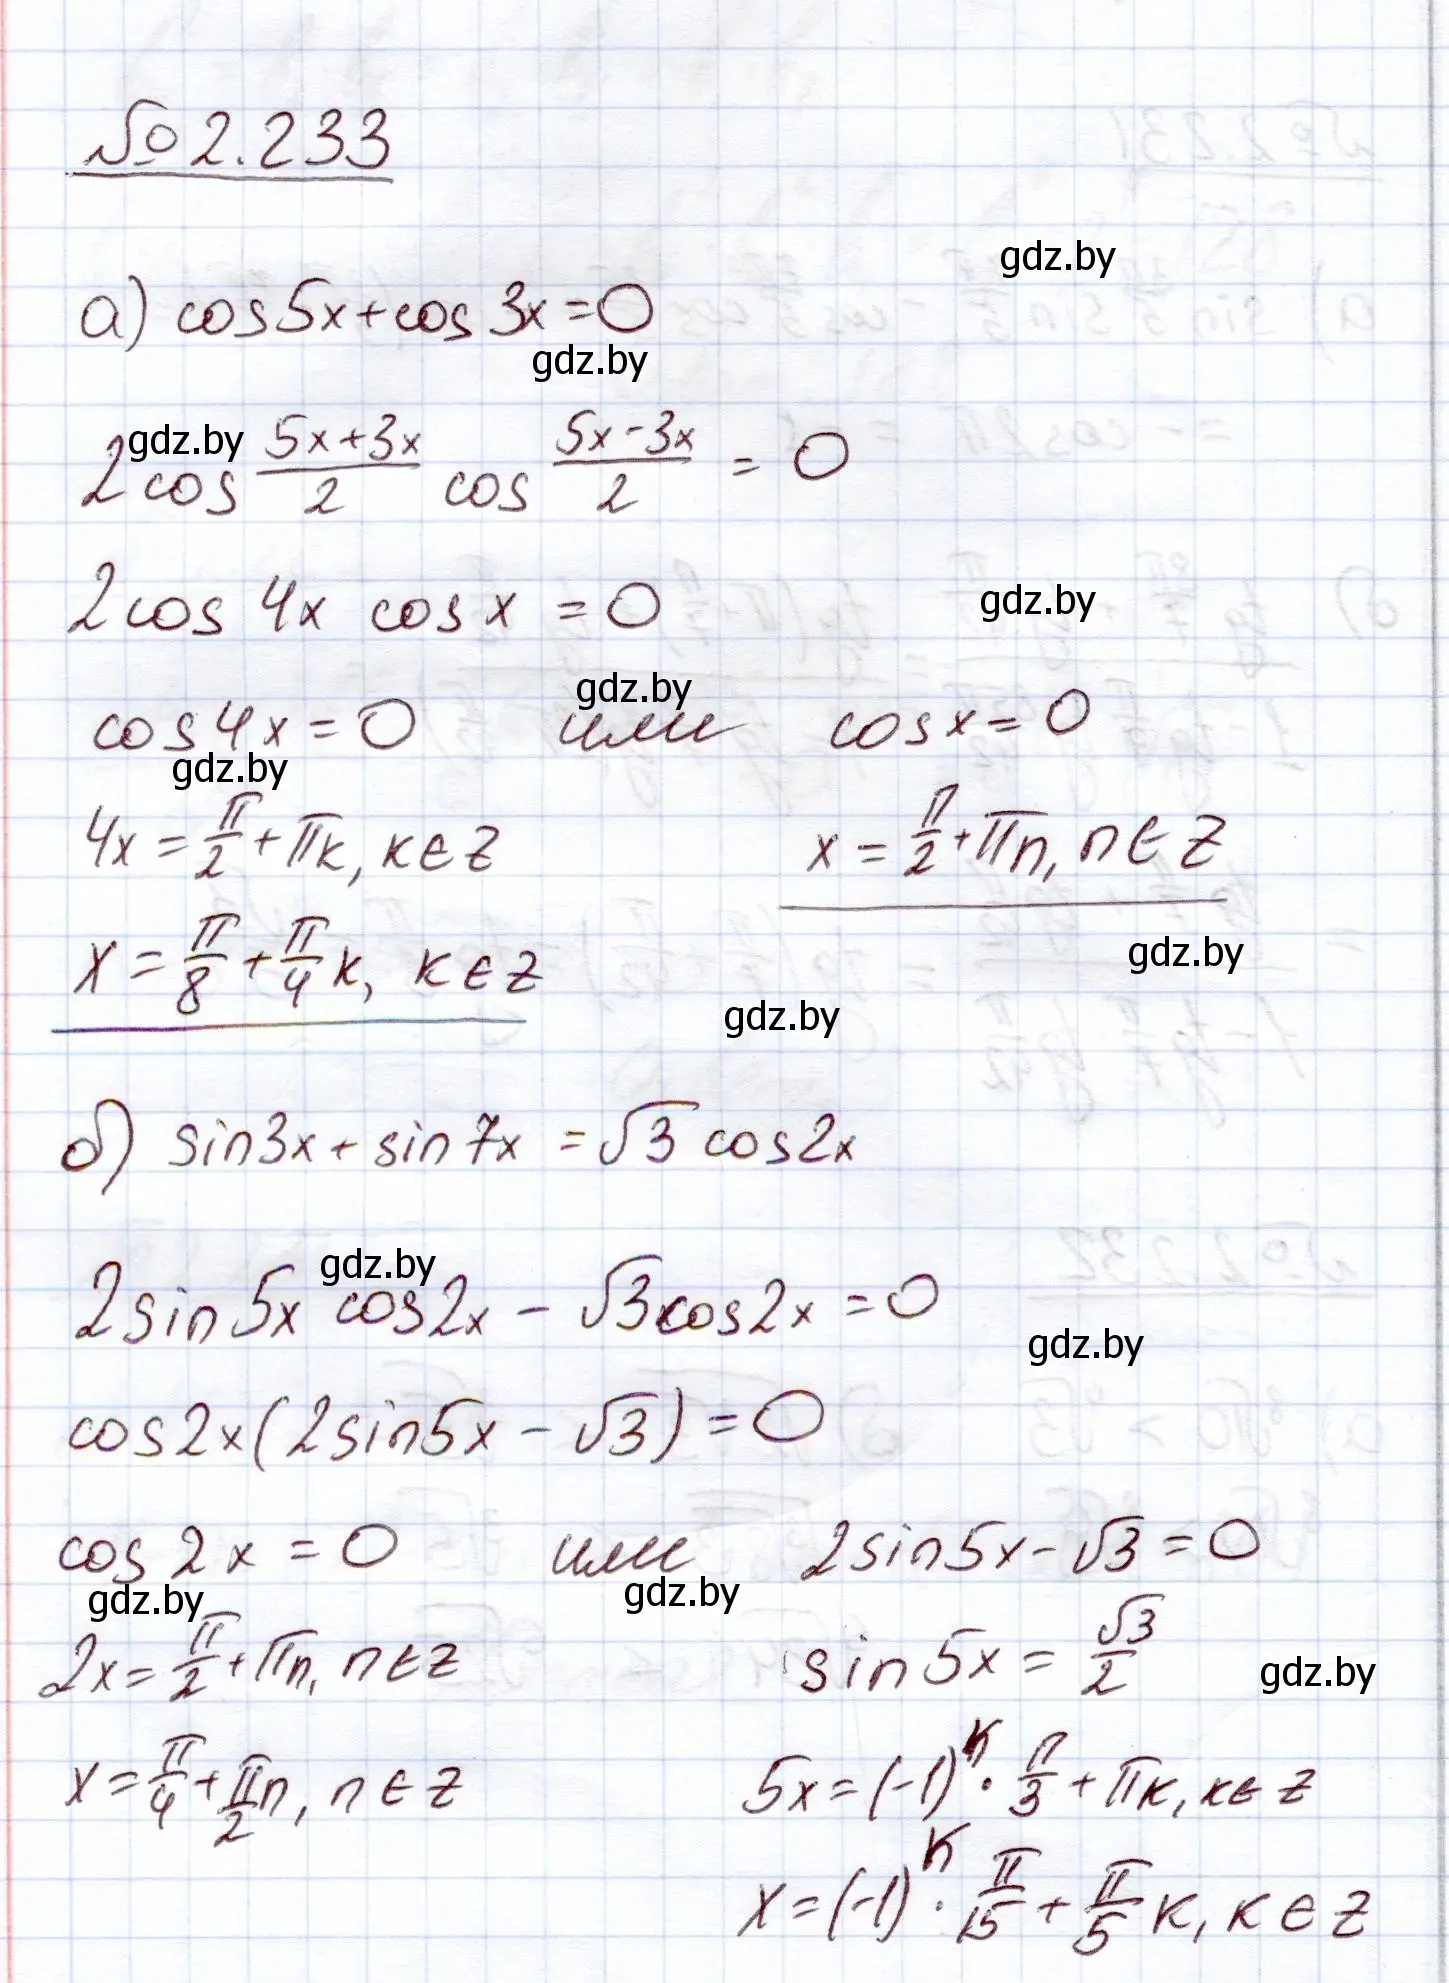 № 2.233
gdz.by
а) cos 5x + cos 3x = 0
gdz.by
gdz.by
2 cos (5x+3x)/2 cos (5x-3x)/2 = 0
2 cos 4x cos x = 0
gdz.by
gdz.by
cos 4x = 0 или cos x = 0
gdz.by
4x = π/2 + πk, k ∈ Z x = π/2 + πn, n ∈ Z
gdz.by
x = π/8 + π/4 k, k ∈ Z
gdz.by
б) sin 3x + sin 7x = √3 cos 2x
gdz.by
2 sin 5x cos 2x - √3 cos 2x = 0
gdz.by
cos 2x (2 sin 5x - √3) = 0
cos 2x = 0 или 2 sin 5x - √3 = 0
gdz.by gdz.by
2x = π/2 + πn, n ∈ Z sin 5x = √3/2
gdz.by
x = π/4 + π/2 n, n ∈ Z 5x = (-1)^k · π/3 + πk, k ∈ Z
x = (-1)^k · π/15 + π/5 k, k ∈ Z